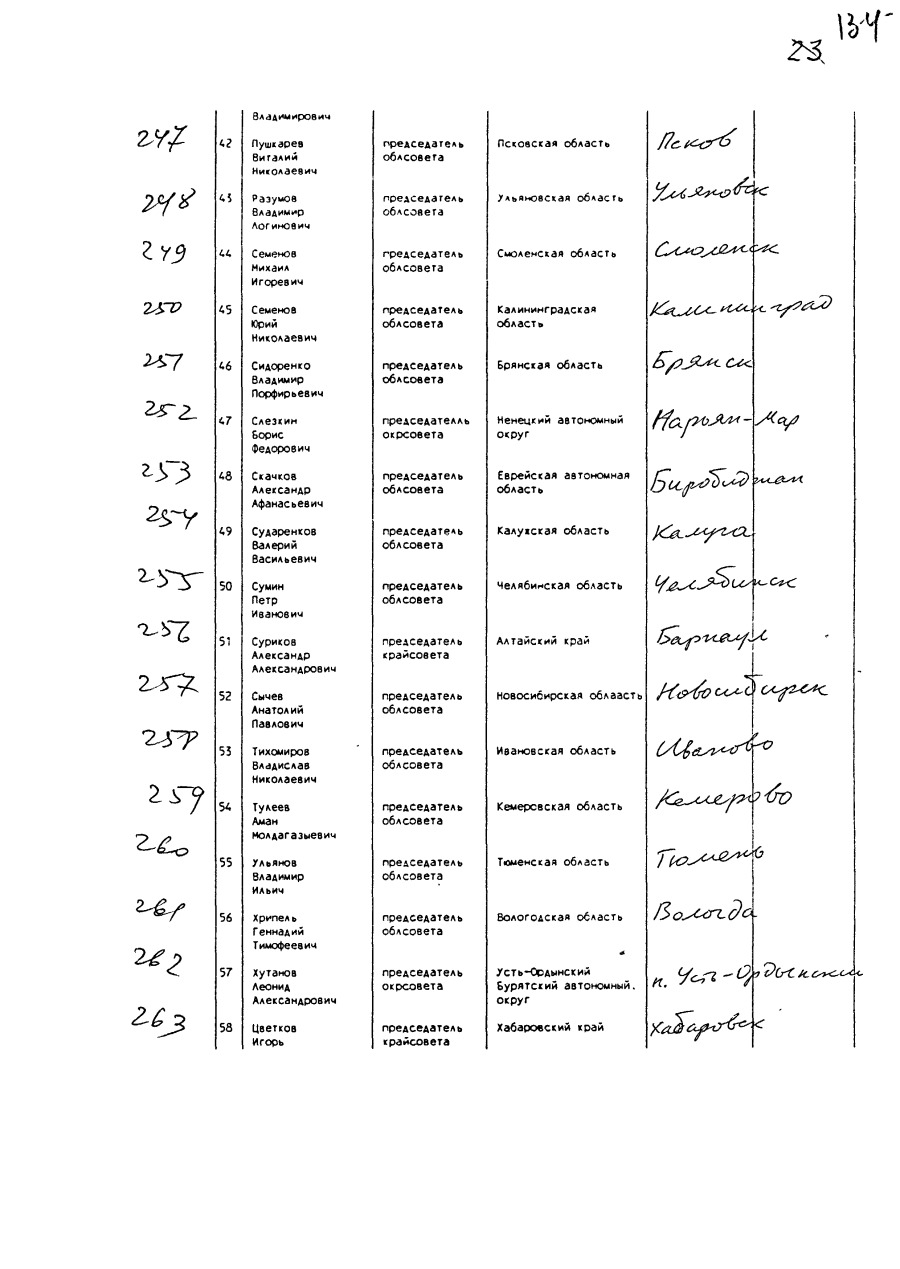 134
23
Владимирович
247 42 Пушкарев председатель Псковская область Псков
Виталий облсовета
Николаевич
248 43 Разумов председатель Ульяновская область Ульяновск
Владимир облсовета
Логинович
249 44 Семенов председатель Смоленская область Смоленск
Михаил облсовета
Игоревич
250 45 Семенов председатель Калининградская Калининград
Юрий облсовета область
Николаевич
251 46 Сидоренко председатель Брянская область Брянск
Владимир облсовета
Порфирьевич
252 47 Слезкин председателль Ненецкий автономный Нарьян-Мар
Борис окрсовета округ
Федорович
253 48 Скачков председатель Еврейская автономная Биробиджан
Александр облсовета область
Афанасьевич
254 49 Сударенков председатель Калужская область Калуга
Валерий облсовета
Васильевич
255 50 Сумин председатель Челябинская область Челябинск
Петр облсовета
Иванович
256 51 Суриков председатель Алтайский край Барнаул
Александр крайсовета
Александрович
257 52 Сычев председатель Новосибирская обласасть Новосибирск
Анатолий облсовета
Павлович
258 53 Тихомиров председатель Ивановская область Иваново
Владислав облсовета
Николаевич
259 54 Тулеев председатель Кемеровская область Кемерово
Аман облсовета
Молдагазыевич
260 55 Ульянов председатель Тюменская область Тюмень
Владимир облсовета
Ильич
261 56 Хрипель председатель Вологодская область Вологда
Геннадий облсовета
Тимофеевич
262 57 Хутанов председатель Усть-Ордынский п. Усть-Ордынский
Леонид окрсовета Бурятский автономный.
Александрович округ
263 58 Цветков председатель Хабаровский край Хабаровск
Игорь крайсовета